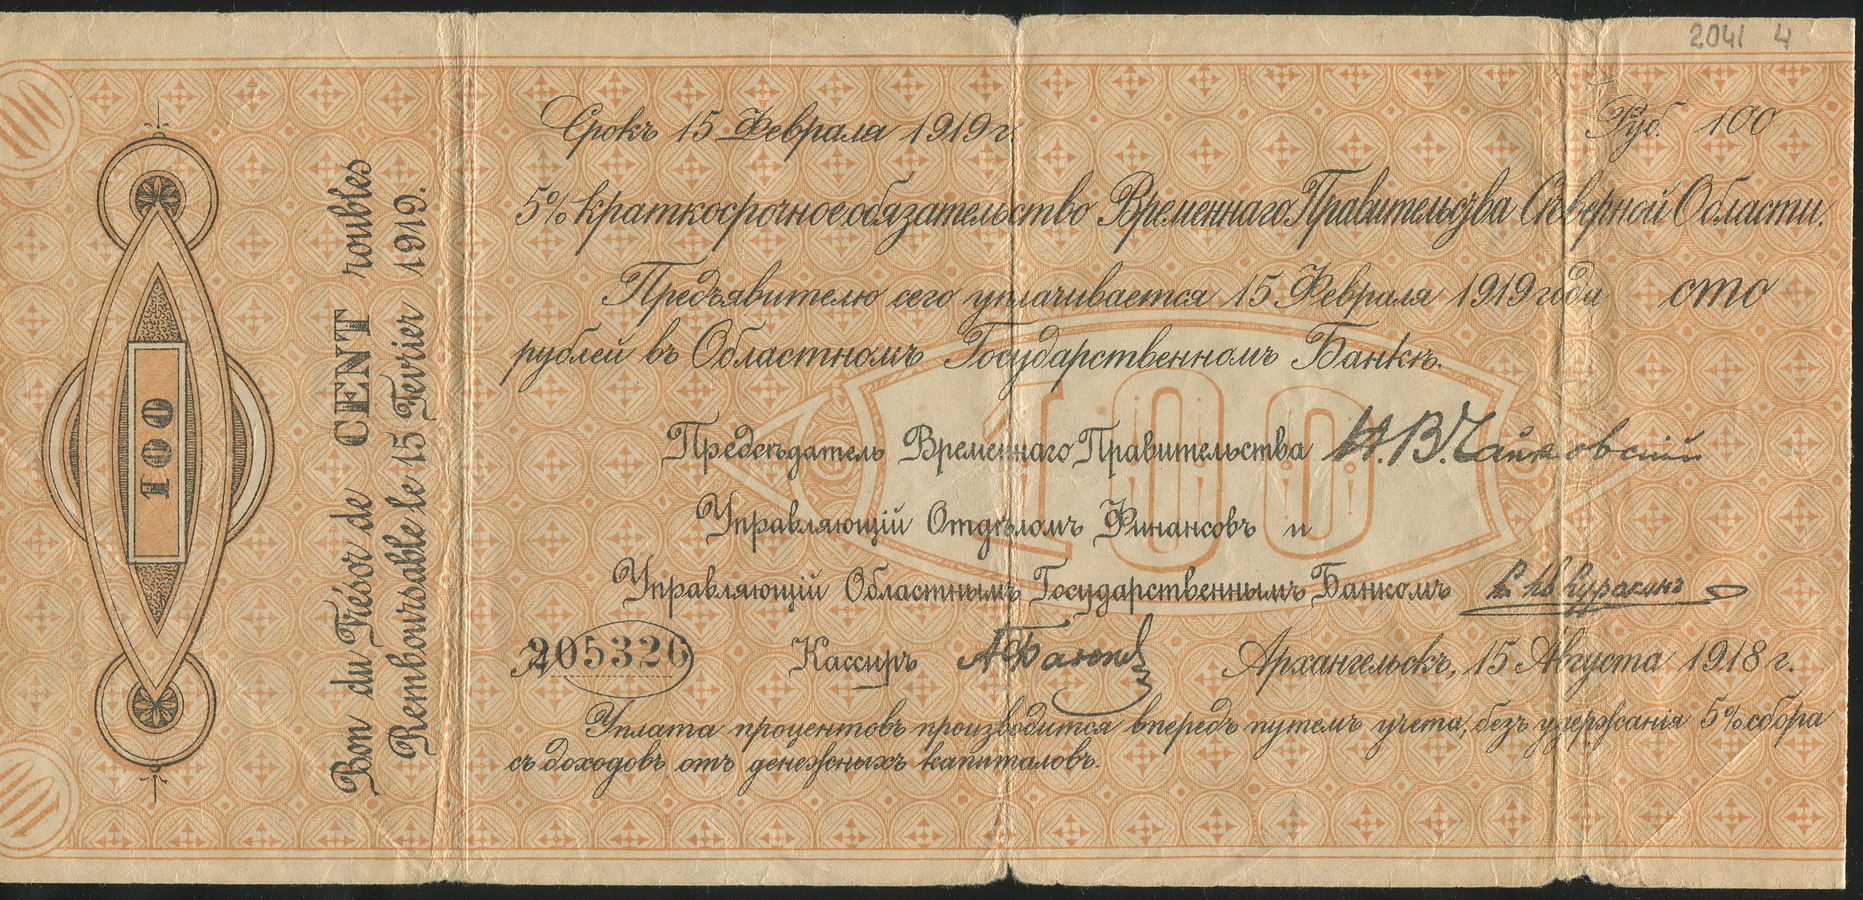 2041 4
Срокъ 15 Февраля 1919 г.
Руб. 100
5% краткосрочное обязательство Временнаго Правительства Сѣверной Области.
Предъявителю сего уплачивается 15 Февраля 1919 года сто
рублей въ Областномъ Государственномъ Банкѣ.
100
Предсѣдатель Временнаго Правительства Н.В.Чайковскій
Управляющій Отдѣломъ Финансовъ и
Управляющій Областнымъ Государственнымъ Банкомъ
№ 205326 Кассиръ
Архангельскъ, 15 Августа 1918 г.
Уплата процентовъ производится впередъ путемъ учета, безъ удержанія 5% сбора
съ доходовъ отъ денежныхъ капиталовъ.
Bon du Trésor de CENT roubles
Remboursable le 15 Fevrier 1919.
100
100
100